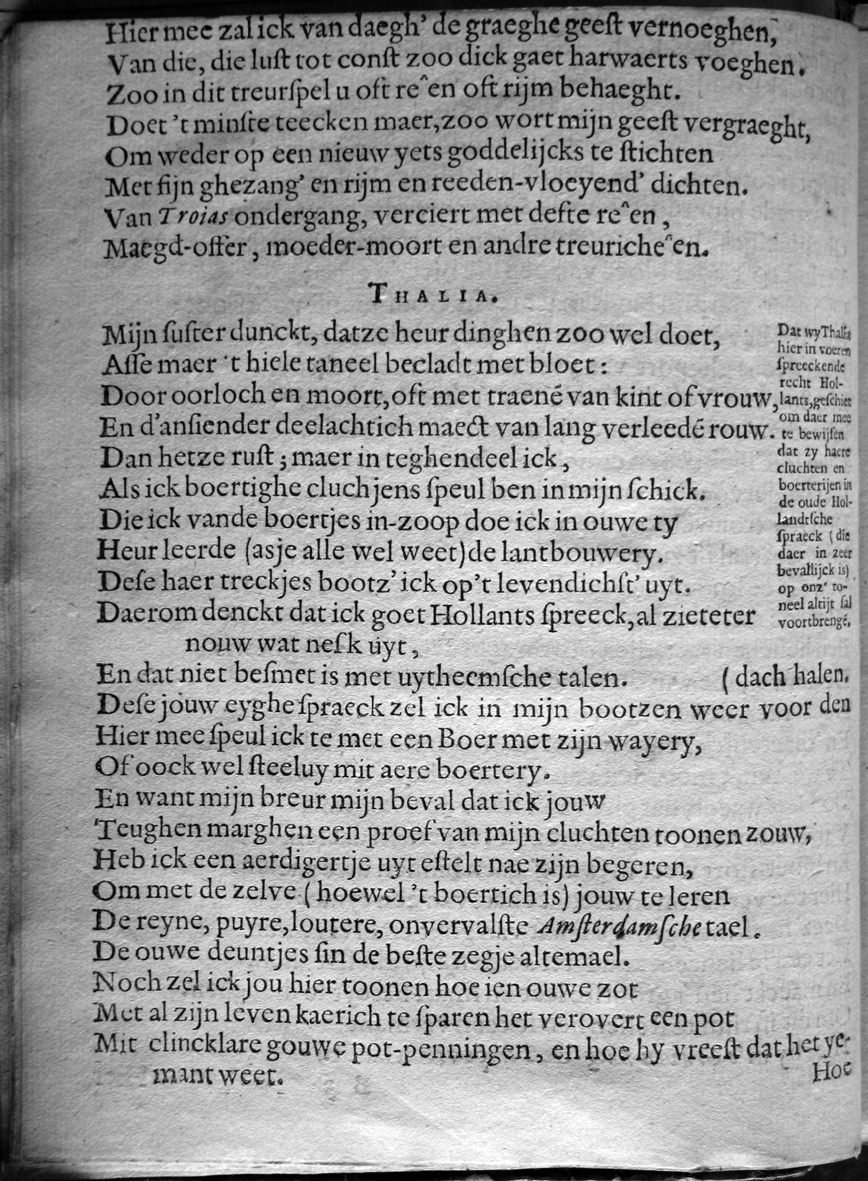 Hier mee zal ick van daegh' de graeghe geeſt vernoeghen,
Van die, die luſt tot conſt zoo dick gaet harwaerts voeghen.
Zoo in dit treurſpel u oft re^en oft rijm behaeght.
Doet 't minſte teecken maer, zoo wort mijn geeſt vergraeght,
Om weder op een nieuw yets goddelijcks te ſtichten
Met fijn ghezang' en rijm en reeden-vloeyend' dichten.
Van Troias ondergang, verciert met defte re^en,
Maegd-offer, moeder-moort en andre treuriche^en.
THALIA.
Mijn ſuſter dunckt, datze heur dinghen zoo wel doet,
Aſſe maer 't hiele taneel becladt met bloet:
Door oorloch en moort, oft met traené van kint of vrouw,
En d'anſiender deelachtich maect van lang verleedé rouw.
Dan hetze ruſt; maer in teghendeel ick,
Als ick boertighe cluchjens ſpeul ben in mijn ſchick.
Die ick vande boertjes in-zoop doe ick in ouwe ty
Heur leerde (asje alle wel weet) de lantbouwery.
Deſe haer treckjes bootz' ick op't levendichſt' uyt.
Daerom denckt dat ick goet Hollants ſpreeck, al zieteter
nouw wat neſk uyt,
En dat niet beſmet is met uytheemſche talen. (dach halen.
Deſe jouw eyghe ſpraeck zel ick in mijn bootzen weer voor den
Hier mee ſpeul ick te met een Boer met zijn wayery,
Of oock wel ſteeluy mit aere boertery.
En want mijn breur mijn beval dat ick jouw
Teughen marghen een proef van mijn cluchten toonen zouw,
Heb ick een aerdigertje uyt eſtelt nae zijn begeren,
Om met de zelve (hoewel 't boertich is) jouw te leren
De reyne, puyre, loutere, onvervalſte Amſterdamſche tael.
De ouwe deuntjes ſin de beſte zegje altemael.
Noch zel ick jou hier toonen hoe ien ouwe zot
Met al zijn leven kaerich te ſparen het verovert een pot
Mit clincklare gouwe pot-penningen, en hoe hy vreeſt dat het ye-
mant weet.
Hoe
Dat wy Thalia
hier in voeren
ſpreeckende
recht Hol-
lants, geſchiet
om daer mee
te bewijſen
dat zy haere
cluchten en
boerterijen in
de oude Hol-
landtſche
ſpraeck (die
daer in zeer
bevallijck is)
op onz' to-
neel altijt ſal
voortbrengé.